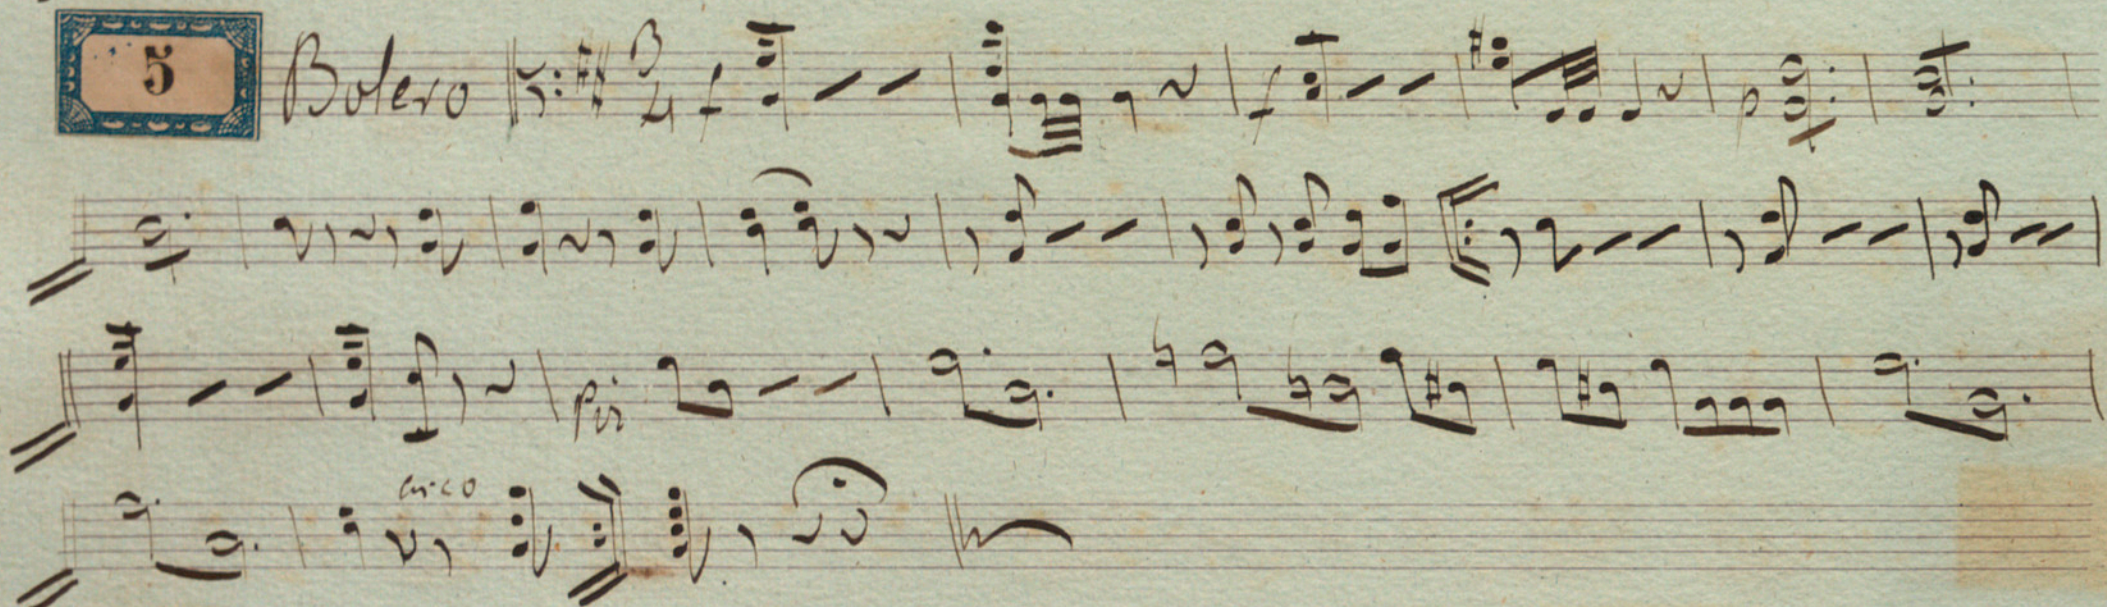 5 Bolero 3 4 f f p
piz
arco